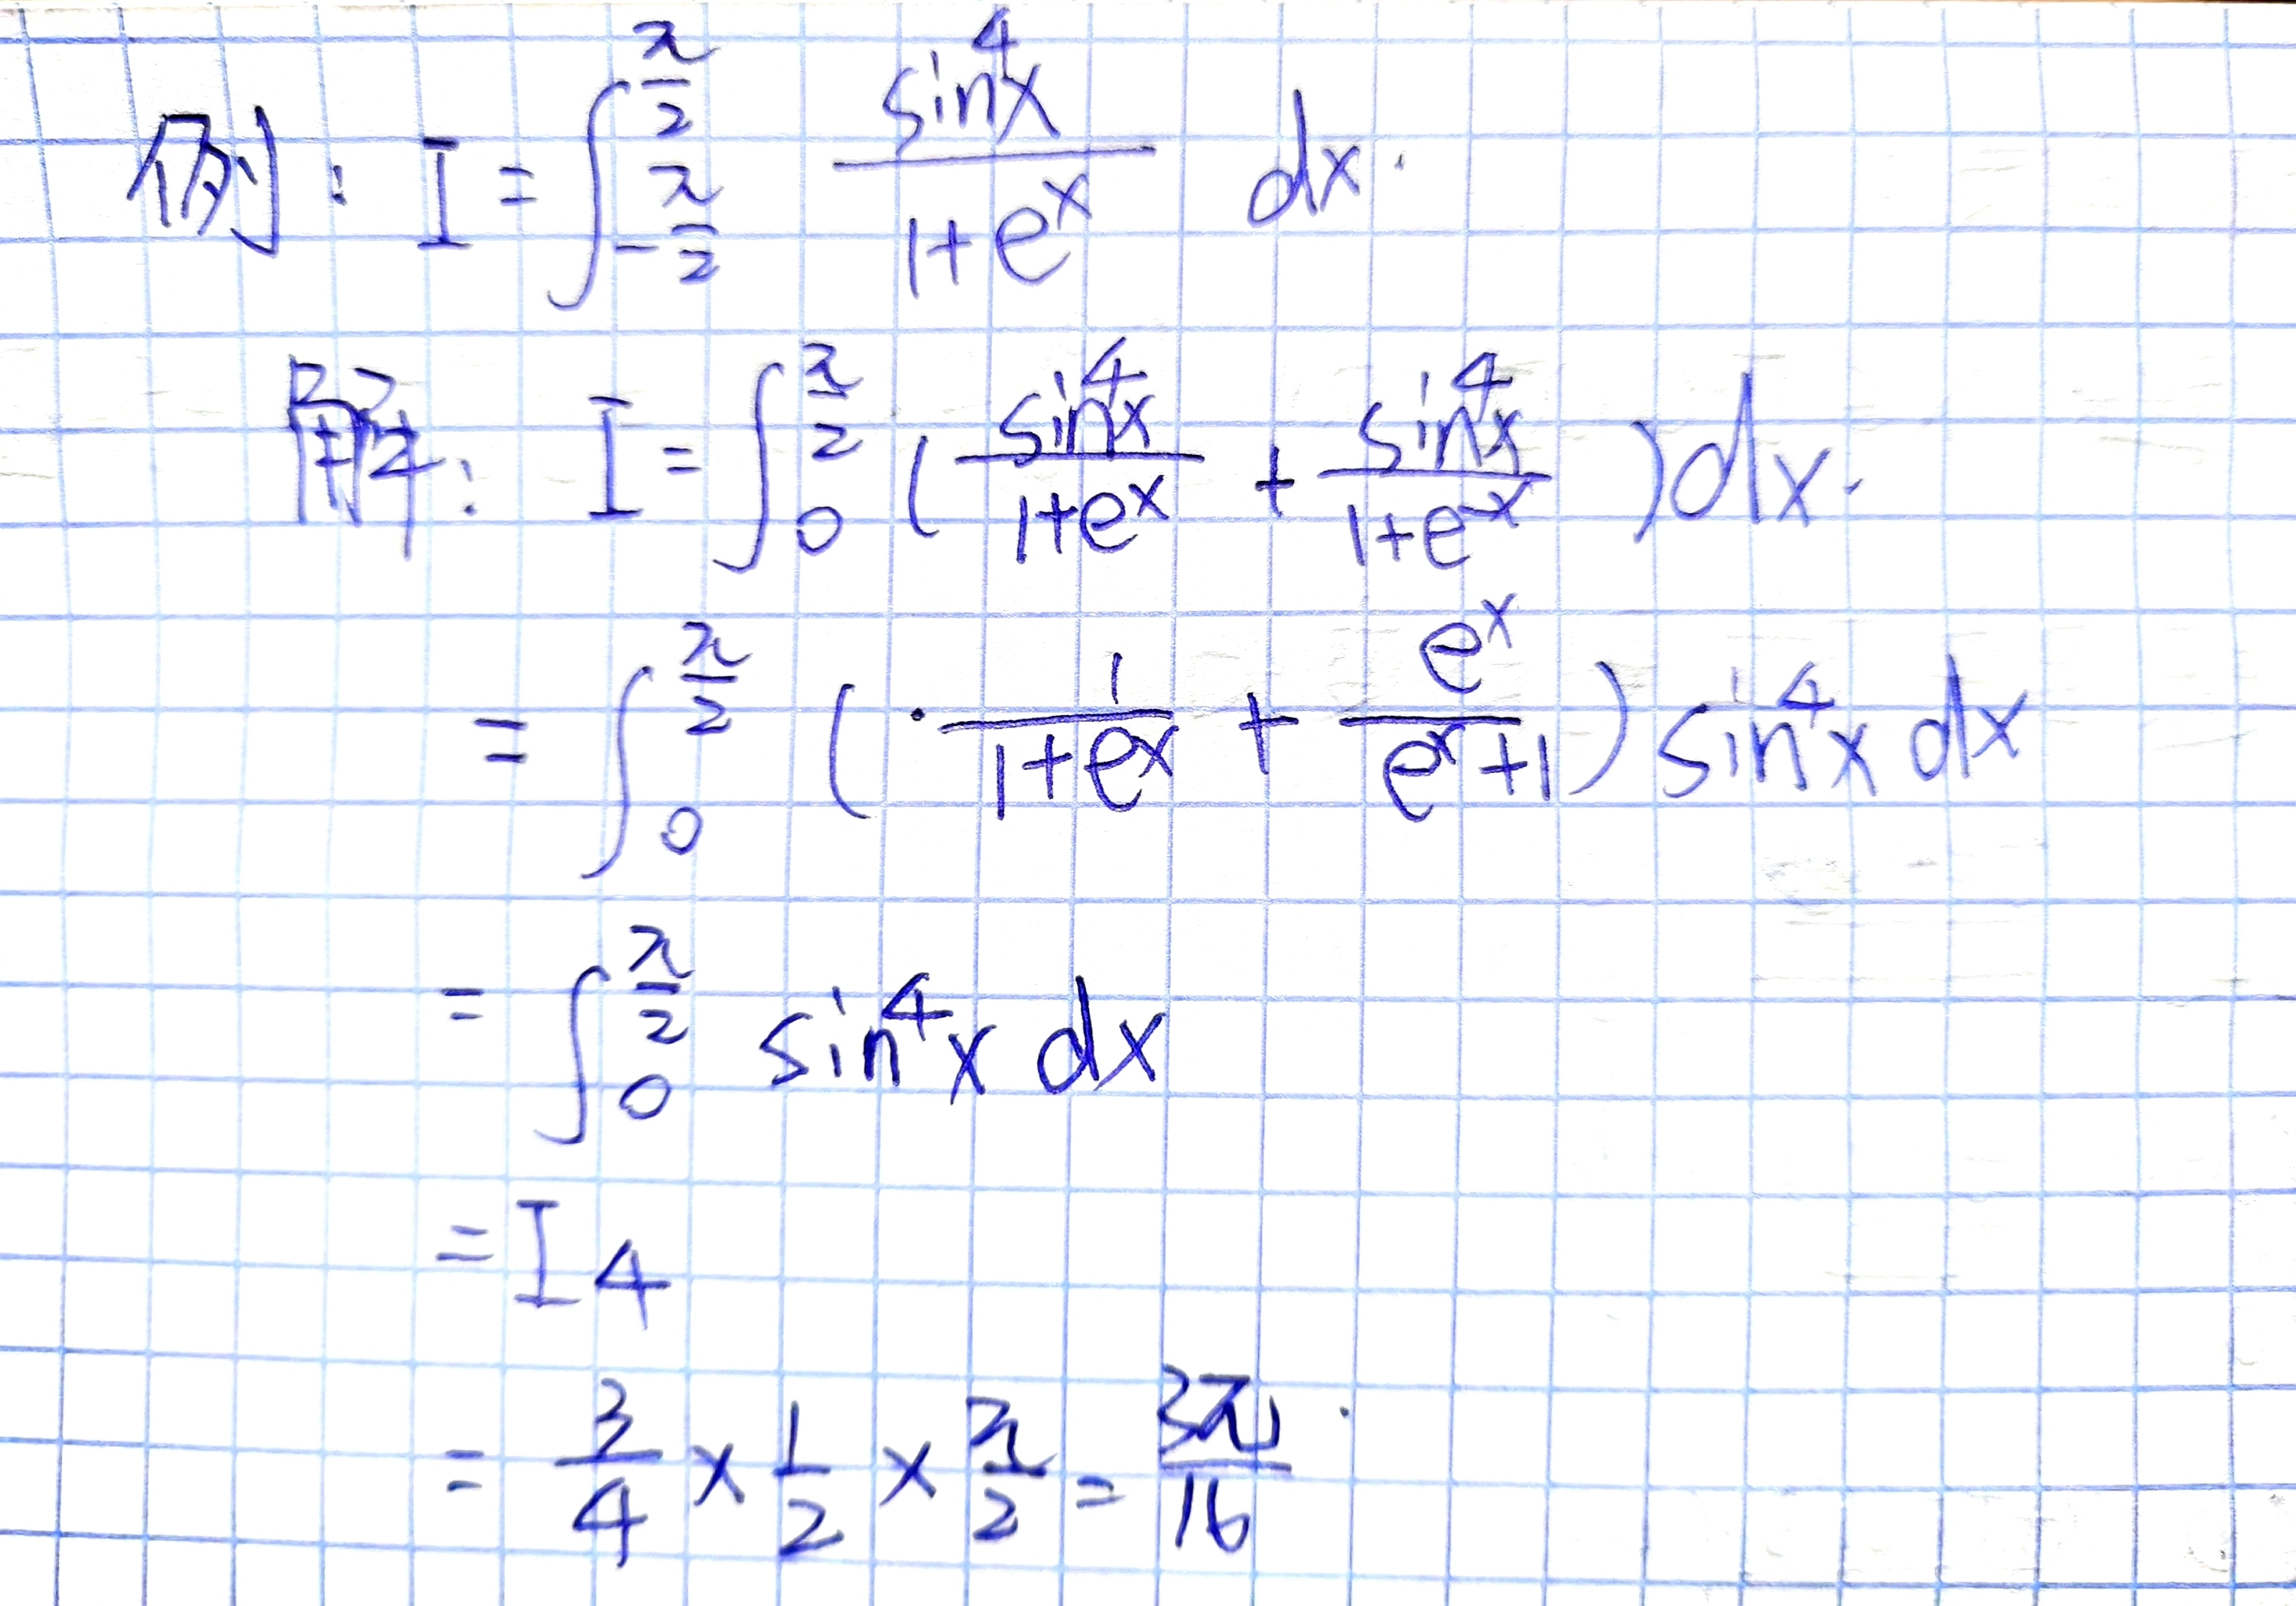 例: I = ∫_{-π/2}^{π/2} \frac{sin⁴x}{1+e^x} dx.
解: I = ∫_0^{π/2} ( \frac{sin⁴x}{1+e^x} + \frac{sin⁴x}{1+e^{-x}} ) dx.
= ∫_0^{π/2} ( \frac{1}{1+e^x} + \frac{e^x}{e^x+1} ) sin⁴x dx
= ∫_0^{π/2} sin⁴x dx
= I₄
= \frac{3}{4} × \frac{1}{2} × \frac{π}{2} = \frac{3π}{16}.